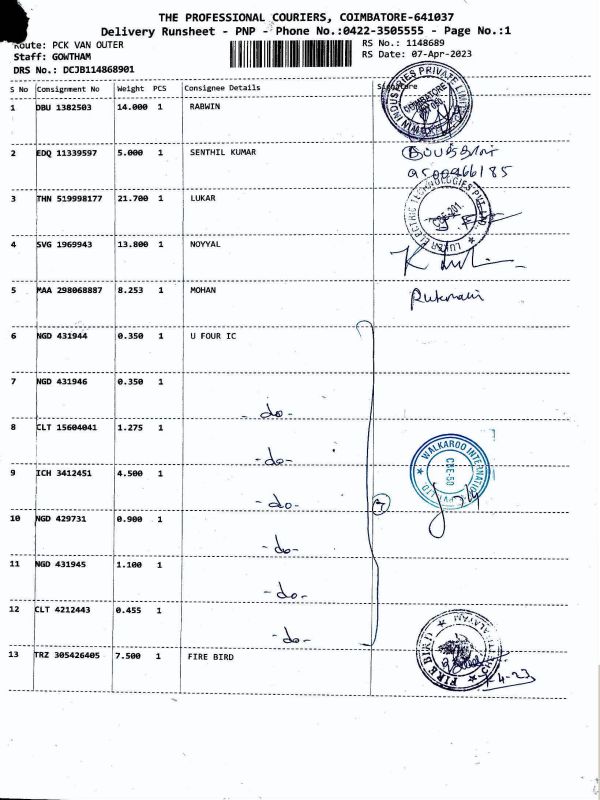 THE PROFESSIONAL COURIERS, COIMBATORE-641037
Delivery Runsheet - PNP - Phone No.:0422-3505555 - Page No.:1
Route: PCK VAN OUTER
RS No.: 1148689
Staff: GOWTHAM
RS Date: 07-Apr-2023
DRS No.: DCJB114868901
S No Consignment No Weight PCS Consignee Details Signature
1 DBU 1382503 14.000 1 RABWIN
INDUSTRIES PRIVATE LIMITED
COIMBATORE
2 EDQ 11339597 5.000 1 SENTHIL KUMAR
9500466185
3 THN 519998177 21.700 1 LUKAR
LUKAR ELECTRIC TECHNOLOGIES PVT. LTD
CBE-201.
4 SVG 1969943 13.800 1 NOYYAL
5 MAA 298068887 8.253 1 MOHAN
Rukmani
6 NGD 431944 0.350 1 U FOUR IC
7 NGD 431946 0.350 1
- do -
8 CLT 15604041 1.275 1
- do -
WALKAROO INTERNATIONAL PVT. LTD.
CBE-50
9 ICH 3412451 4.500 1
- do -
7
10 NGD 429731 0.900 1
- do -
11 NGD 431945 1.100 1
- do -
12 CLT 4212443 0.455 1
- do -
13 TRZ 305426405 7.500 1 FIRE BIRD
FIRE BIRD
4-23